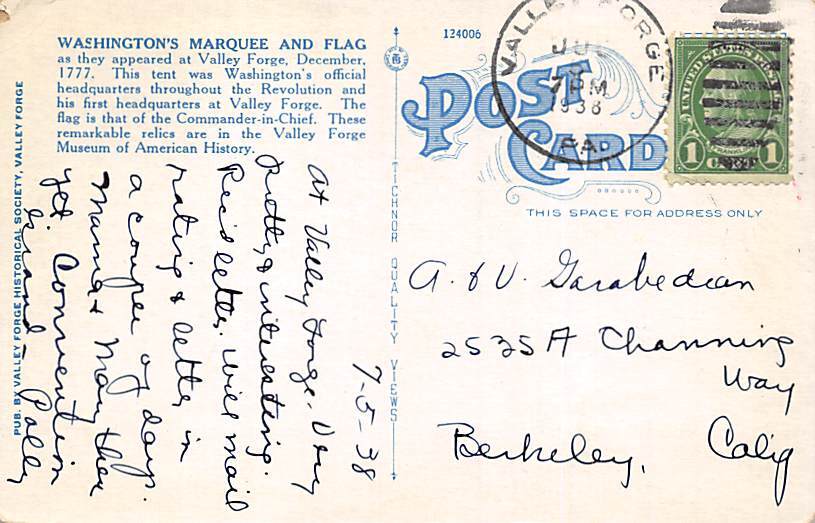 WASHINGTON'S MARQUEE AND FLAG
as they appeared at Valley Forge, December,
1777. This tent was Washington's official
headquarters throughout the Revolution and
his first headquarters at Valley Forge. The
flag is that of the Commander-in-Chief. These
remarkable relics are in the Valley Forge
Museum of American History.
PUB. BY VALLEY FORGE HISTORICAL SOCIETY, VALLEY FORGE
124006
POST CARD
THIS SPACE FOR ADDRESS ONLY
TICHNOR QUALITY VIEWS
VALLEY FORGE
7 PM
1938
PA.
UNITED STATES POST
1 CENT 1
7-5-38
At Valley Forge. Very
pretty & interesting.
Rec'd letter. Will mail
rating & letter in
a couple of days.
Mama & Mary there
yet. Convention
grand - Polly
A. & V. Garabedian
2525 A Channing
Way
Berkeley, Calif